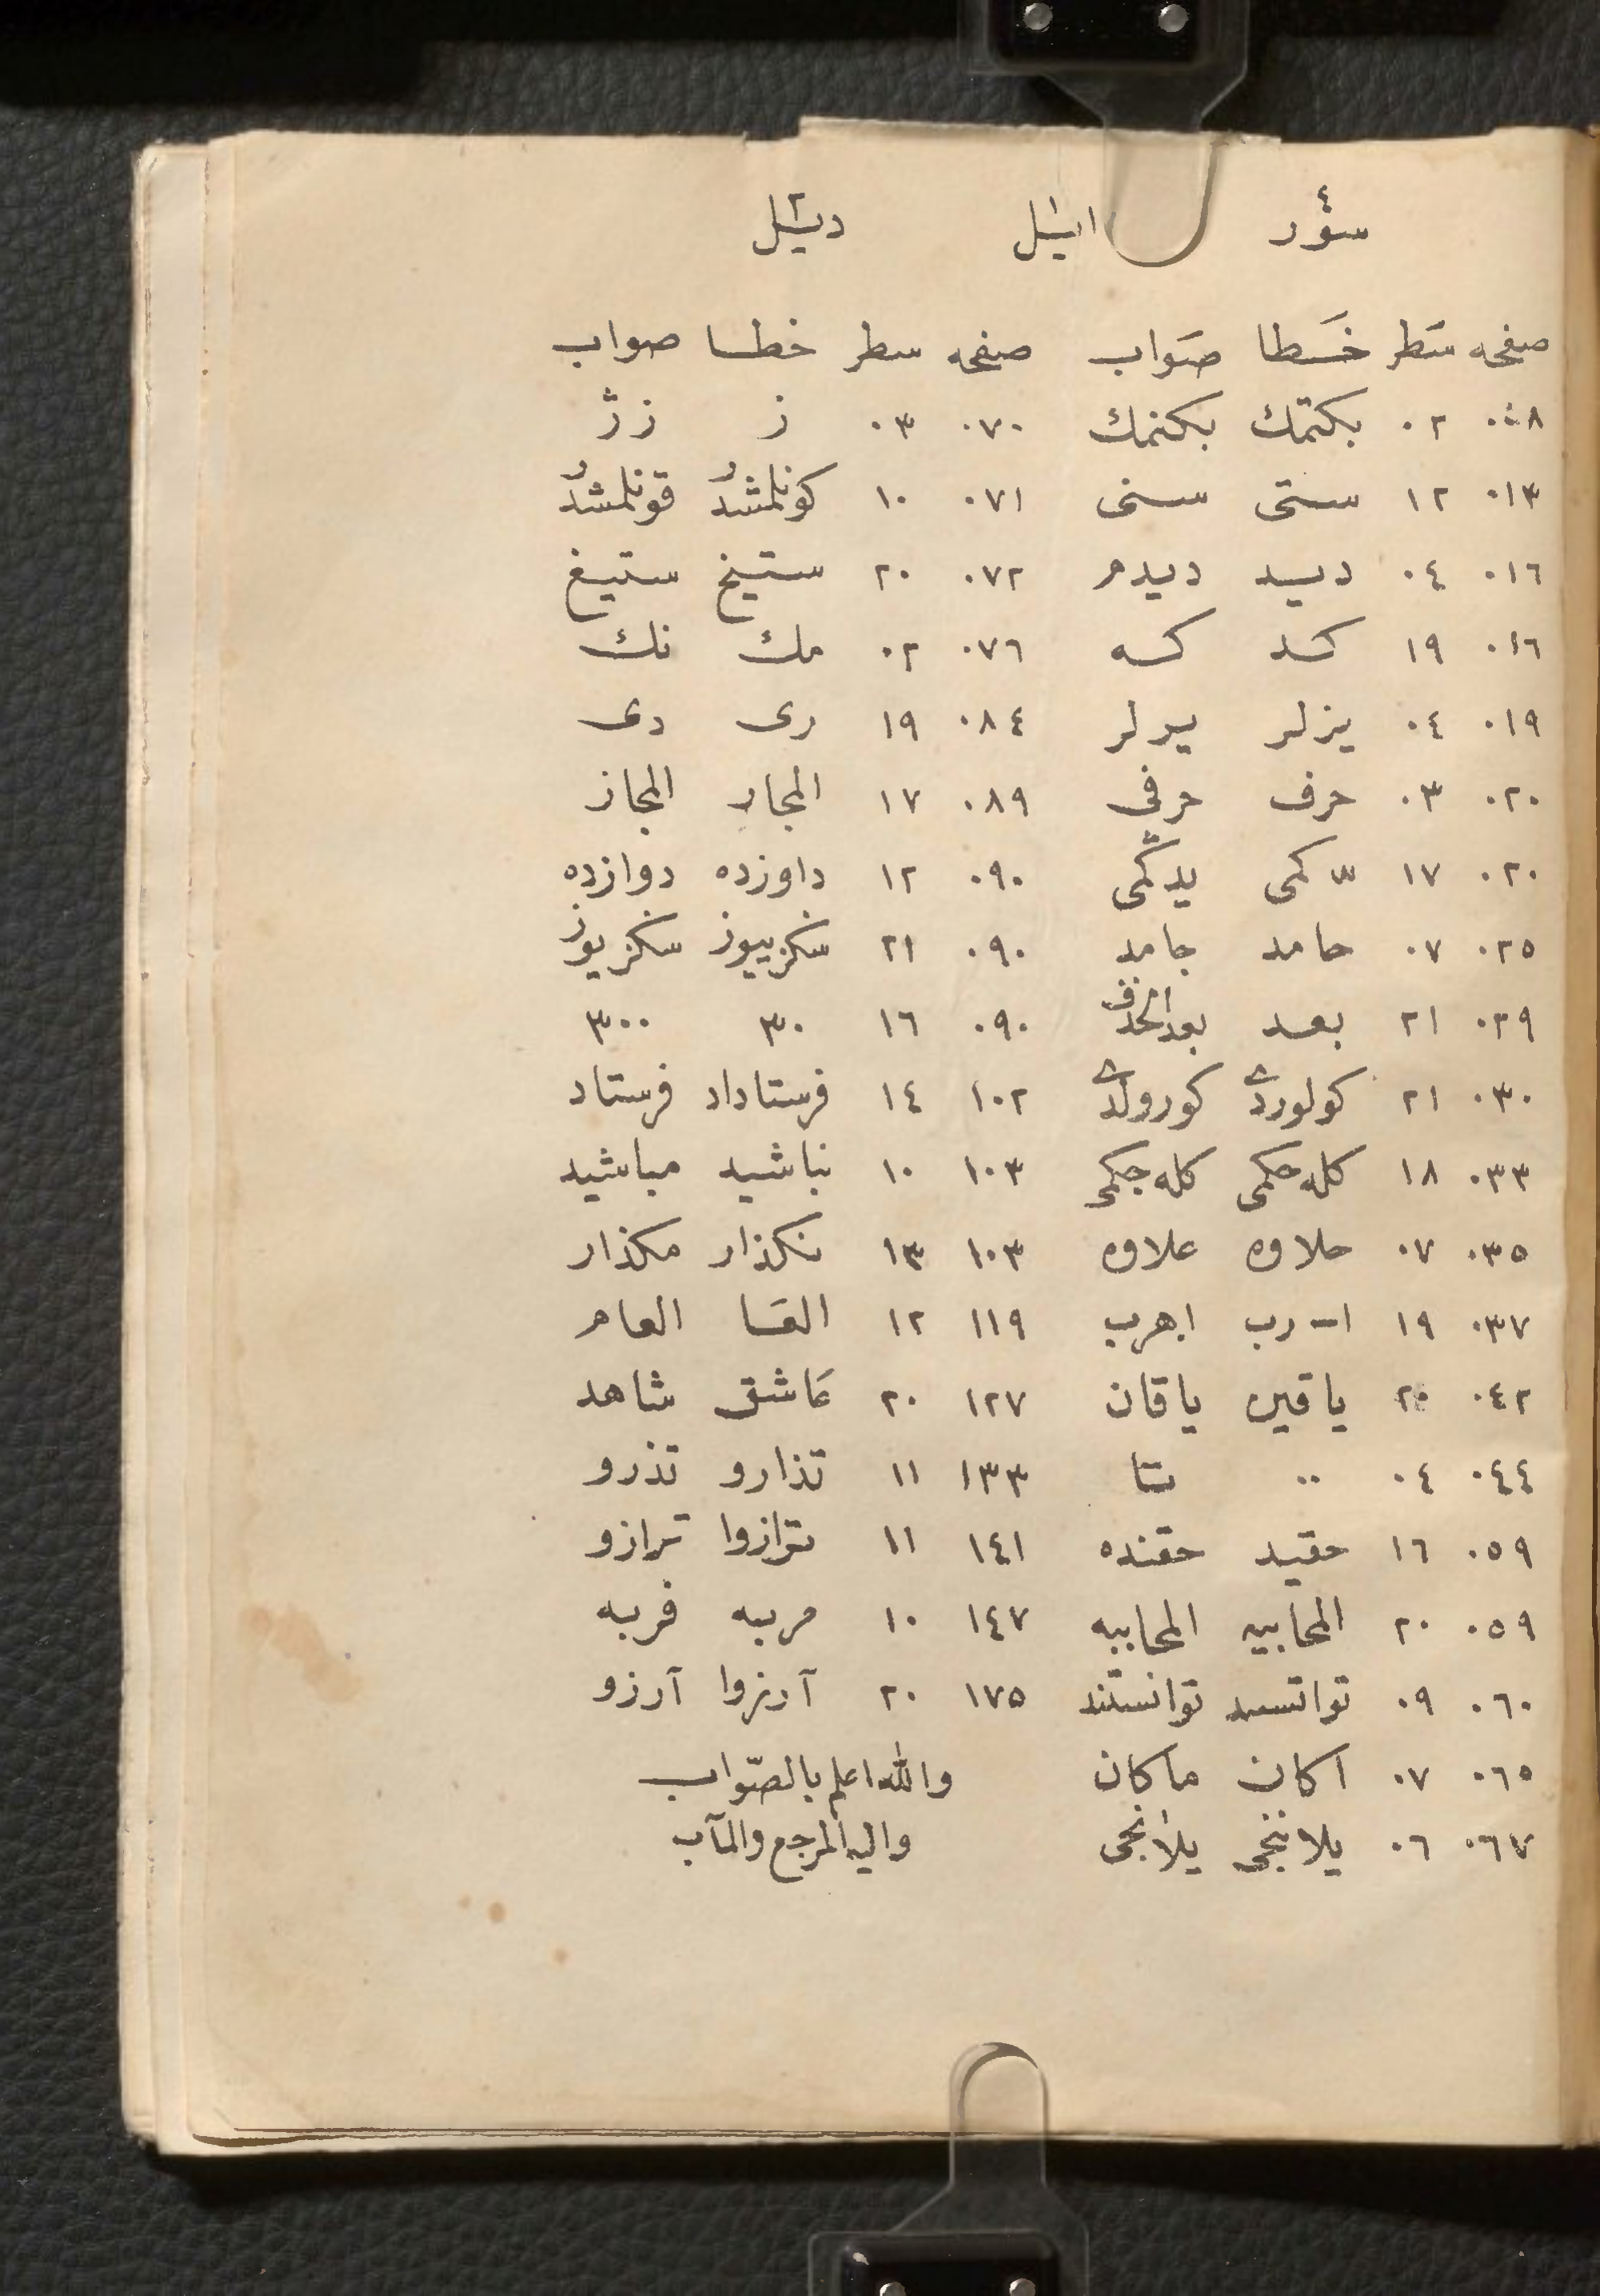 صفحه سطر خطا صواب صفحه سطر خطا صواب
٠٠٨ ٠٢ بكتمك بكنمك ٠٧٠ ٠٣ ز زژ
٠١٣ ١٢ ستى سنى ٠٧١ ١٠ كونلمشدر قونلمشدر
٠١٦ ٠٤ ديسد ديدم ٠٧٢ ٢٠ ستيخ ستيغ
٠١٦ ١٩ كسد كسه ٠٧٦ ٠٢ مك نك
٠١٩ ٠٤ يزلر يرلر ٠٨٤ ١٩ رى دى
٠٢٠ ٠٣ حرف حرفى ٠٨٩ ١٧ المجار المجاز
٠٢٠ ١٧ كمى يدكمى ٠٩٠ ١٢ داوزده دوازده
٠٢٥ ٠٧ حامد جامد ٠٩٠ ٢١ سكزبييوز سكزيوز
٠٢٩ ٢١ بعد بعد الحذف ٠٩٠ ١٦ ٣٠ ٣٠٠
٠٣٠ ٢١ كولوردے كورولدے ١٠٢ ١٤ فرستاداد فرستاد
٠٣٣ ١٨ كله حكمى كله جكمى ١٠٣ ١٠ نباشيد مباشيد
٠٣٥ ٠٧ حلاوه علاوه ١٠٣ ١٣ نكذار مكذار
٠٣٧ ١٩ ا-رب اهرب ١١٩ ١٢ القسا العام
٠٤٢ ٢٠ ياقين ياقان ١٢٧ ٢٠ عاشق شاهد
٠٤٤ ٠٤ ٠٠ تتا ١٣٣ ١١ تذارو تذرو
٠٥٩ ١٦ حقيد حقنده ١٤١ ١١ ترازوا ترازو
٠٥٩ ٢٠ المحابيه المحاببه ١٤٧ ١٠ مربه فربه
٠٦٠ ٠٩ تواتسد توانستند ١٧٥ ٢٠ آرزوا آرزو
٠٦٥ ٠٧ اكان ماكان والله اعلم بالصّواب
٠٦٧ ٠٦ يلاننجى يلانجى واليه المرجع والمآب